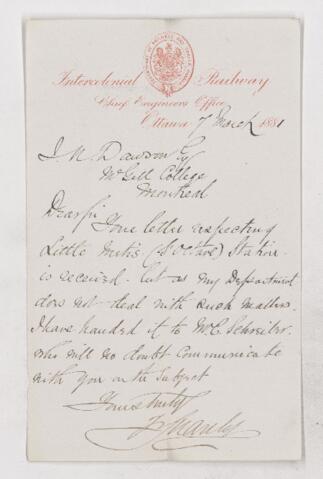 Intercolonial Railway
Chief Engineers Office
Ottawa 7 March 1881
J. W. Dawson Esq
McGill College
Montreal
Dear Sir
Your letter respecting
Little Metis (St Octave) Station
is received. but as my Department
does not deal with such matters
I have handed it to Mr C. Schreiber
who will no doubt communicate
with you on the subject
Yours truly